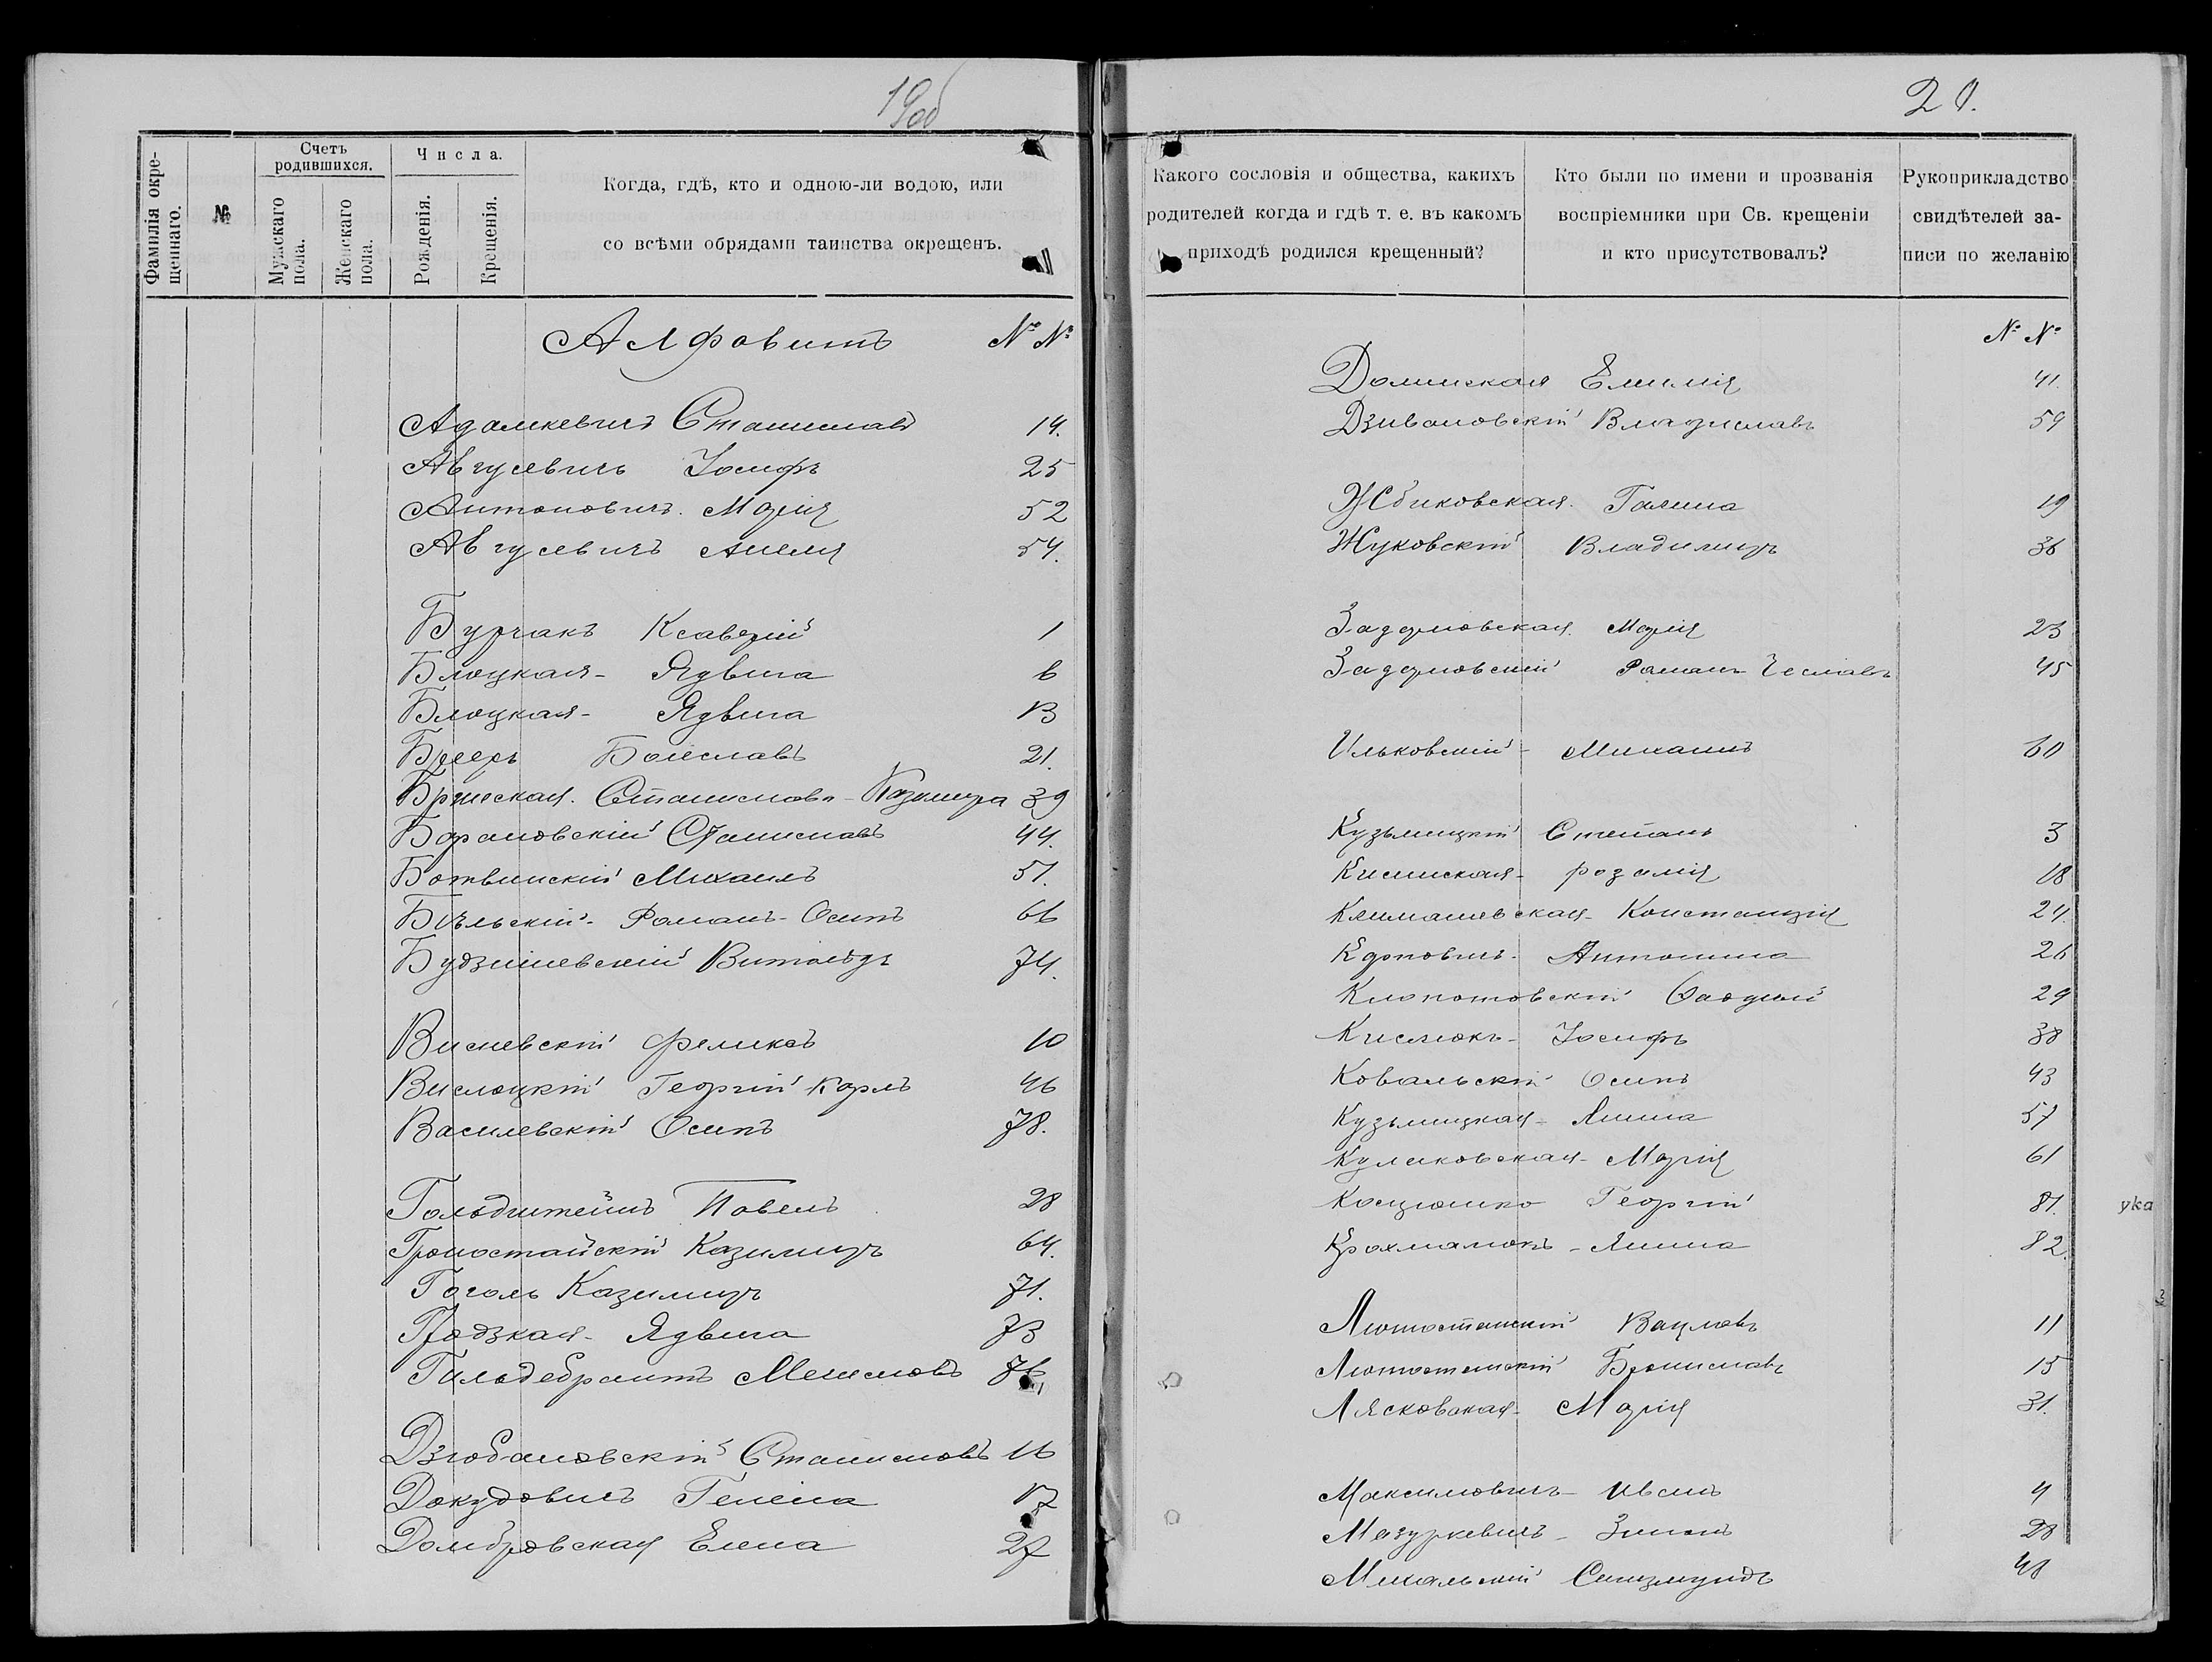 19об
20.
Фамилія окрещеннаго.
№
Счетъ родившихся.
Мужскаго пола.
Женскаго пола.
Числа.
Рожденія.
Крещенія.
Когда, гдѣ, кто и одною-ли водою, или
со всѣми обрядами таинства окрещенъ.
Какого сословія и общества, какихъ
родителей когда и гдѣ т. е. въ какомъ
приходѣ родился крещенный?
Кто были по имени и прозванія
воспріемники при Св. крещеніи
и кто присутствовалъ?
Рукоприкладство
свидѣтелей за-
писи по желанію
Алфовитъ №№
Адамкевичъ Станиславъ 14.
Авгусевичъ Іосифъ 25
Антоновичъ. Марія 52
Авгусевичъ Анеля 54.
Бурчакъ Ксаверій 1
Блоцкая - Ядвига 6
Блоцкая - Ядвига 13
Брееръ Болеславъ 21.
Станислава - Казимира 39
Барановскій Станиславъ 44.
Ботвинскій Михаилъ 51.
Бѣльскій - Романъ - Осипъ 66
Будзишевскій Витольдъ 74.
Висневскій Феликсъ 10
Вислоцкій Георгій Карлъ 46
Василевскій Осипъ 78.
Гольдштейнъ Павелъ 28
Гроностайскій Казимиръ 64.
Гоголь Казимиръ 71.
Гродзкая - Ядвига 73
Гильдебрантъ 76
Дзюбановскій Станиславъ 16
Докудовичъ Гелена 17
Домбровская Елена 27
№ №
Долинская Емилія 41.
Дзивановскій Владиславъ 59
Жбиковская. Галина 19
Жуковскій Владимиръ 36
Задарновская. Марія 23
Задарновскій Романъ Чеславъ 45
Ильковскій - Михаилъ 60
Кузьмицкій Степанъ 3
Розалія 18
Климашевская - Констанція 24.
Карповичъ - Антонина 26
Клопотовскій 29
Кислюкъ - Іосифъ 38
Ковальскій Осипъ 43
Кузьмицкая - Янина 57
Куликовская - Марія 61
Косцюшко Георгій 81.
Крохмалюкъ - Янина 82.
Лютостанскій Вацлавъ 11
Лютостанскій Брониславъ 15
Лясковская - Марія 31.
Максимовичъ - Иванъ 4
Мазуркевичъ - Зинонъ 28
Михальскій Сигизмундъ 48
ука